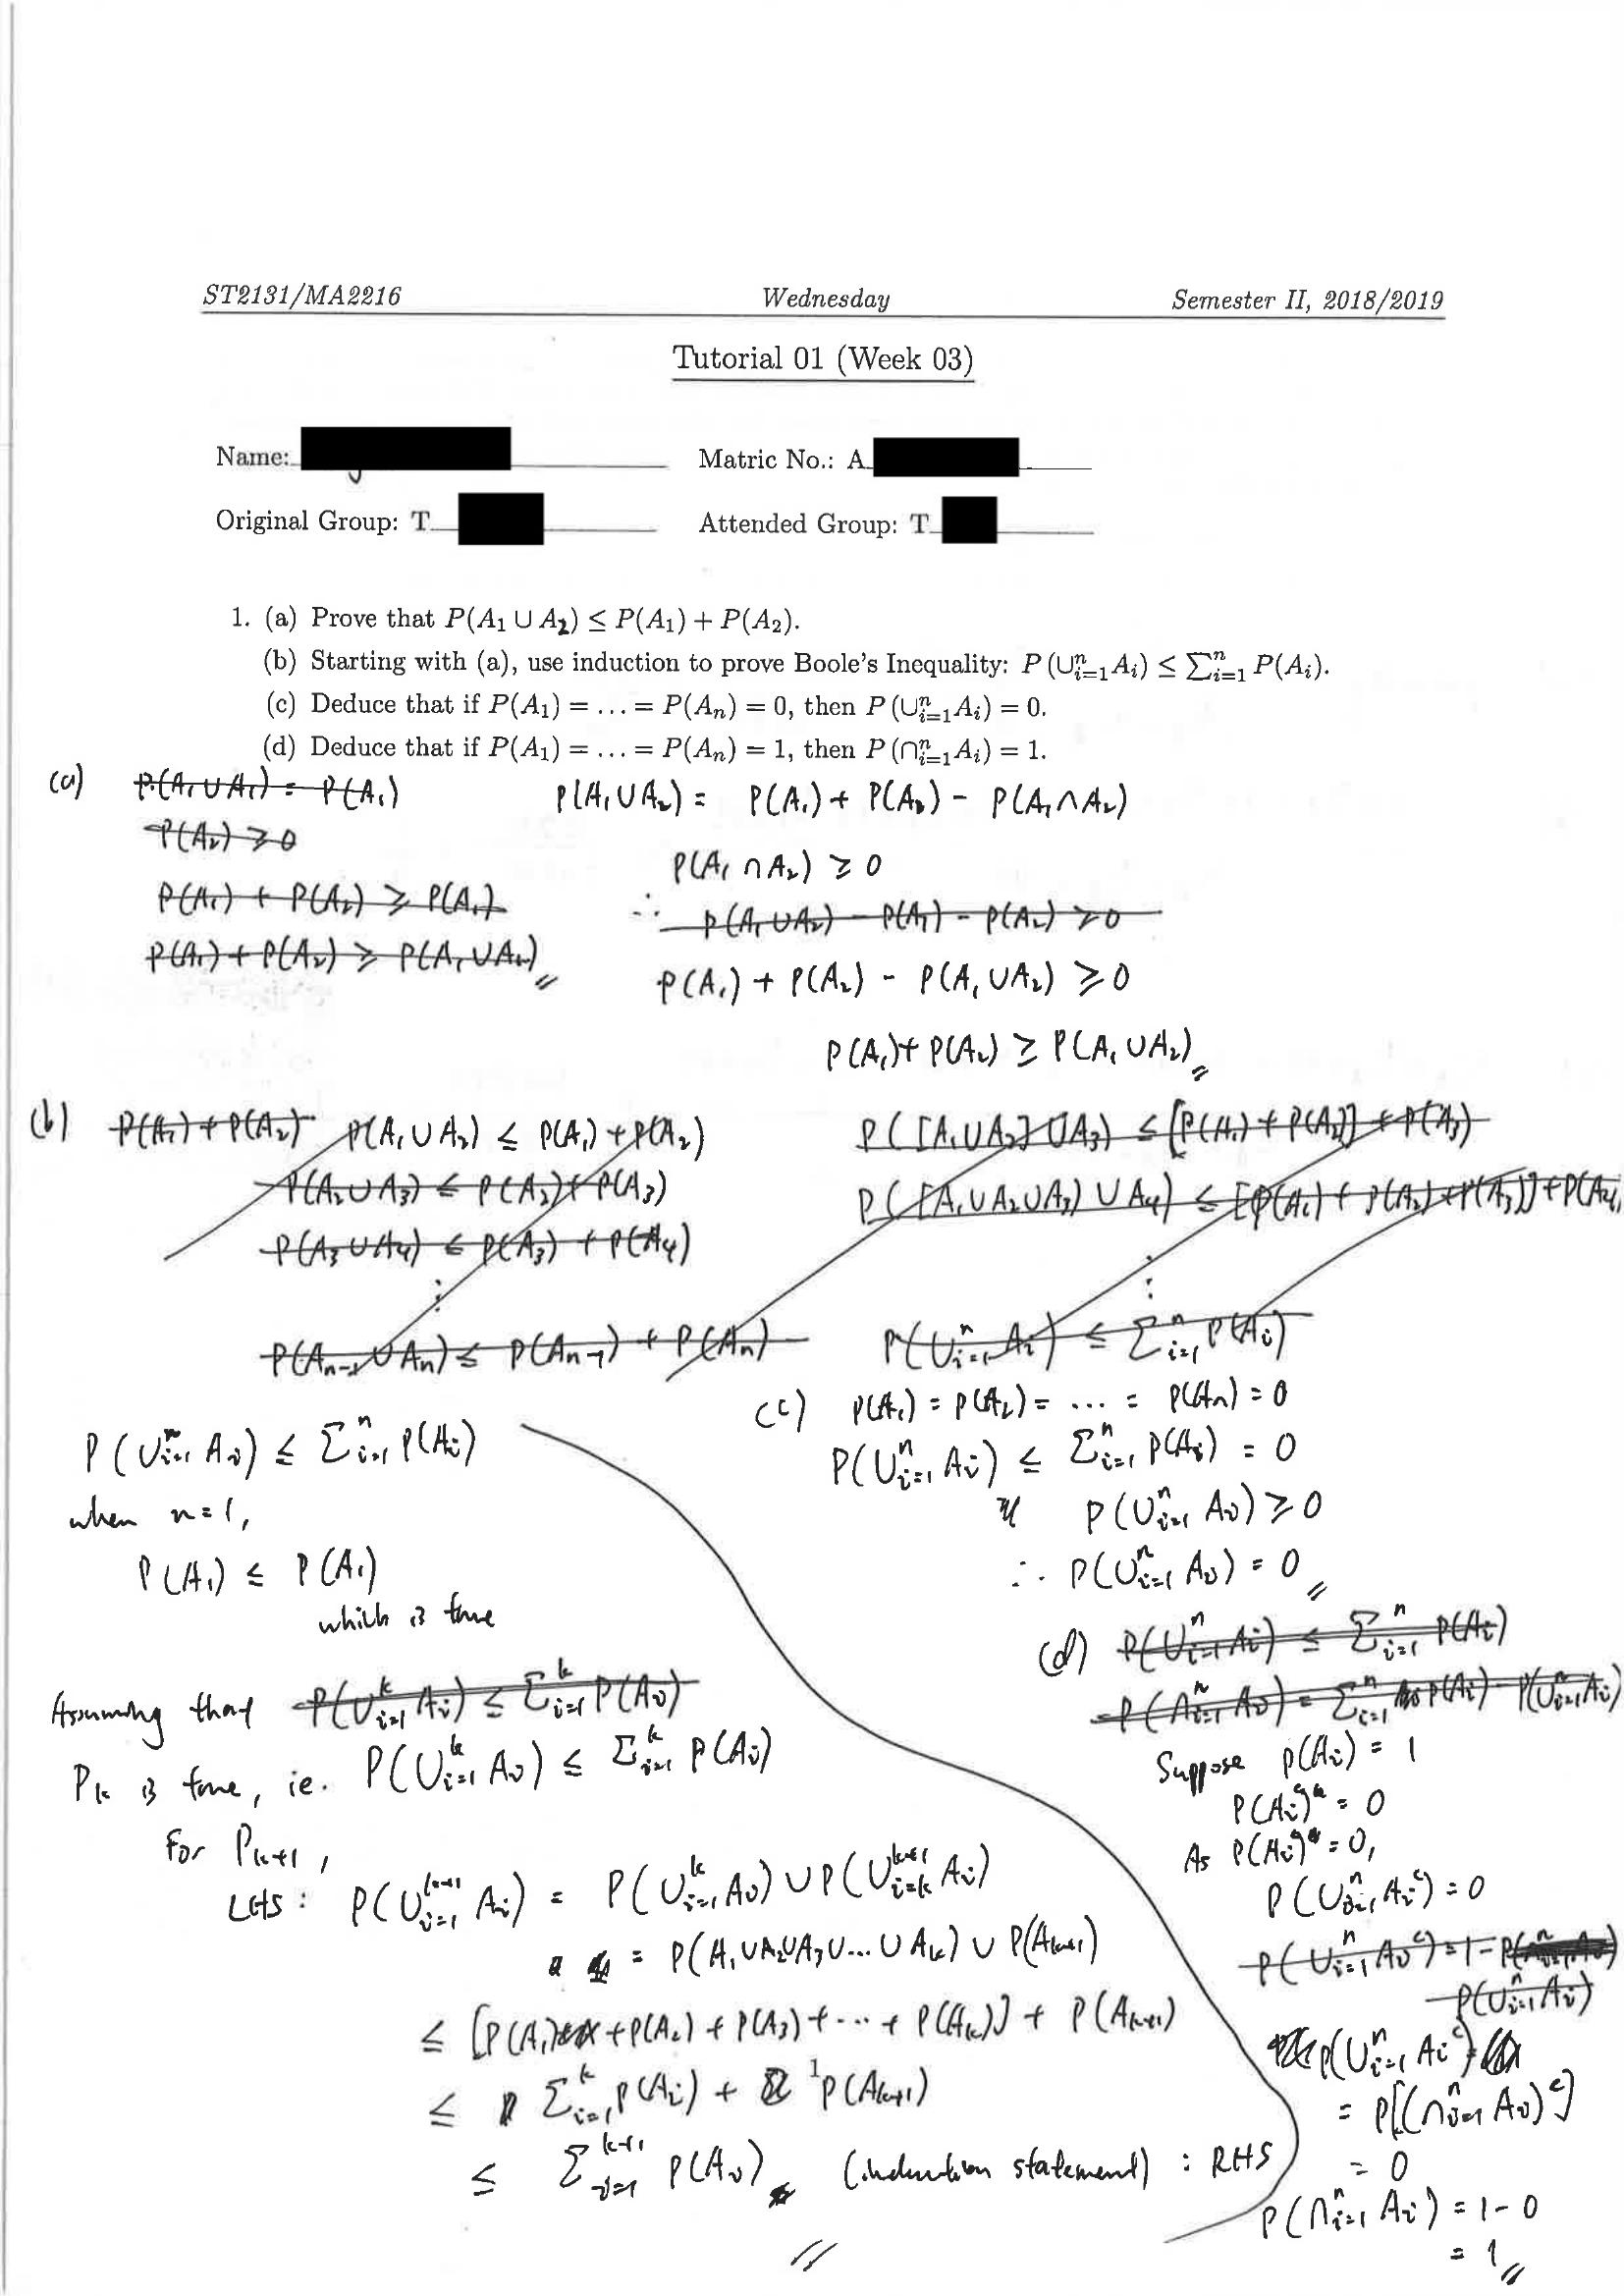 ST2131/MA2216 Wednesday Semester II, 2018/2019
Tutorial 01 (Week 03)
Name: Matric No.: A
Original Group: T Attended Group: T
1. (a) Prove that P(A₁ ∪ A₂) ≤ P(A₁) + P(A₂).
(b) Starting with (a), use induction to prove Boole's Inequality: P(∪ⁿᵢ₌₁Aᵢ) ≤ ∑ⁿᵢ₌₁ P(Aᵢ).
(c) Deduce that if P(A₁) = … = P(Aₙ) = 0, then P(∪ⁿᵢ₌₁Aᵢ) = 0.
(d) Deduce that if P(A₁) = … = P(Aₙ) = 1, then P(∩ⁿᵢ₌₁Aᵢ) = 1.
(a) P(A₁∪A₁) = P(A₁)
P(A₂) ≥ 0
P(A₁) + P(A₂) ≥ P(A₁)
P(A₁) + P(A₂) ≥ P(A₁∪A₂)
P(A₁∪A₂) = P(A₁) + P(A₂) - P(A₁∩A₂)
P(A₁∩A₂) ≥ 0
∴ P(A₁∪A₂) - P(A₁) - P(A₂) ≥ 0
P(A₁) + P(A₂) - P(A₁∪A₂) ≥ 0
P(A₁) + P(A₂) ≥ P(A₁∪A₂)
(b) P(A₁) + P(A₂) P(A₁∪A₂) ≤ P(A₁) + P(A₂)
P(A₂∪A₃) ≤ P(A₂) + P(A₃)
P(A₃∪A₄) ≤ P(A₃) + P(A₄)
⋮
P(Aₙ₋₁∪Aₙ) ≤ P(Aₙ₋₁) + P(Aₙ)
P([A₁∪A₂]∪A₃) ≤ [P(A₁) + P(A₂)] + P(A₃)
P([A₁∪A₂∪A₃)∪A₄) ≤ [P(A₁) + P(A₂) + P(A₃)] + P(A₄)
⋮
P(∪ⁿᵢ₌₁ Aᵢ) ≤ ∑ⁿᵢ₌₁ P(Aᵢ)
P(∪ⁿᵢ₌₁ Aᵢ) ≤ ∑ⁿᵢ₌₁ P(Aᵢ)
when n=1,
P(A₁) ≤ P(A₁)
which is true
Assuming that P(∪ᵏᵢ₌₁ Aᵢ) ≤ ∑ᵏᵢ₌₁ P(Aᵢ)
Pₖ is true, ie. P(∪ᵏᵢ₌₁ Aᵢ) ≤ ∑ᵏᵢ₌₁ P(Aᵢ)
For Pₖ₊₁,
LHS: P(∪ᵏ⁺¹ᵢ₌₁ Aᵢ) = P(∪ᵏᵢ₌₁ Aᵢ) ∪ P(∪ᵏ⁺¹ᵢ₌ₖ Aᵢ)
= P(A₁∪A₂∪A₃∪...∪Aₖ) ∪ P(Aₖ₊₁)
≤ [P(A₁) + P(A₂) + P(A₃) + ... + P(Aₖ)] + P(Aₖ₊₁)
≤ ∑ᵏᵢ₌₁ P(Aᵢ) + P(Aₖ₊₁)
≤ ∑ᵏ⁺¹ᵢ₌₁ P(Aᵢ) (induction statement) : RHS
(c) P(A₁) = P(A₂) = ... = P(Aₙ) = 0
P(∪ⁿᵢ₌₁ Aᵢ) ≤ ∑ⁿᵢ₌₁ P(Aᵢ) = 0
P(∪ⁿᵢ₌₁ Aᵢ) ≥ 0
∴ P(∪ⁿᵢ₌₁ Aᵢ) = 0
(d) P(∪ⁿᵢ₌₁ Aᵢ) ≤ ∑ⁿᵢ₌₁ P(Aᵢ)
P(∩ⁿᵢ₌₁ Aᵢ) = ∑ⁿᵢ₌₁ P(Aᵢ) - P(∪ⁿᵢ₌₁ Aᵢ)
Suppose P(Aᵢ) = 1
P(Aᵢ)ᶜ = 0
As P(Aᵢ)ᶜ = 0,
P(∪ⁿᵢ₌₁ Aᵢᶜ) = 0
P(∪ⁿᵢ₌₁ Aᵢᶜ) = 1 -
P(∪ⁿᵢ₌₁ Aᵢ)
P(∪ⁿᵢ₌₁ Aᵢᶜ)
= P[(∩ⁿᵢ₌₁ Aᵢ)ᶜ]
= 0
P(∩ⁿᵢ₌₁ Aᵢ) = 1 - 0
= 1